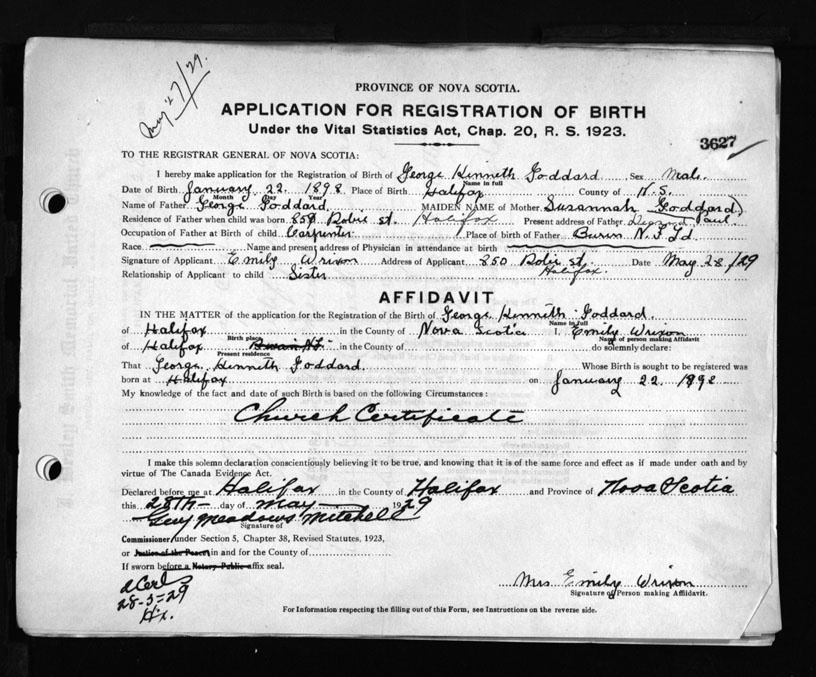 May 27/29.
PROVINCE OF NOVA SCOTIA.
APPLICATION FOR REGISTRATION OF BIRTH
Under the Vital Statistics Act, Chap. 20, R. S. 1923.
3627
TO THE REGISTRAR GENERAL OF NOVA SCOTIA:
I hereby make application for the Registration of Birth of George Kinnith Goddard Sex Male
Name in full
Date of Birth January 22. 1898 Place of Birth Halifax County of N.S.
Month Day Year
Name of Father George Goddard. MAIDEN NAME of Mother Susannah (Goddard) Paul
Residence of Father when child was born 850 Robie st. Halifax Present address of Father
Occupation of Father at Birth of child Carpenter Place of birth of Father Burin N.F.Ld
Race Name and present address of Physician in attendance at birth
Signature of Applicant Emily Wrixon Address of Applicant 850 Robie st. Halifax. Date May 28/29
Relationship of Applicant to child Sister
AFFIDAVIT
IN THE MATTER of the application for the Registration of the Birth of George Kinnith Goddard.
Name in full
of Halifax in the County of Nova Scotia I, Emily Wrixon
Birth place Name of person making Affidavit
of Halifax in the County of do solemnly declare:
Present residence
That George Kinnith Goddard. Whose Birth is sought to be registered was
born at Halifax on January 22 1898
My knowledge of the fact and date of such Birth is based on the following Circumstances:
Church Certificate
I make this solemn declaration conscientiously believing it to be true, and knowing that it is of the same force and effect as if made under oath and by
virtue of The Canada Evidence Act.
Declared before me at Halifax in the County of Halifax and Province of Nova Scotia
this 28th day of May 1929
Guy Meadows Mitchell
Signature of
Commissioner under Section 5, Chapter 38, Revised Statutes, 1923,
or Justice of the Peace in and for the County of
If sworn before a Notary Public affix seal.
28-5-29
Hx.
Mrs Emily Wrixon
Signature of Person making Affidavit.
For Information respecting the filling out of this Form, see Instructions on the reverse side.